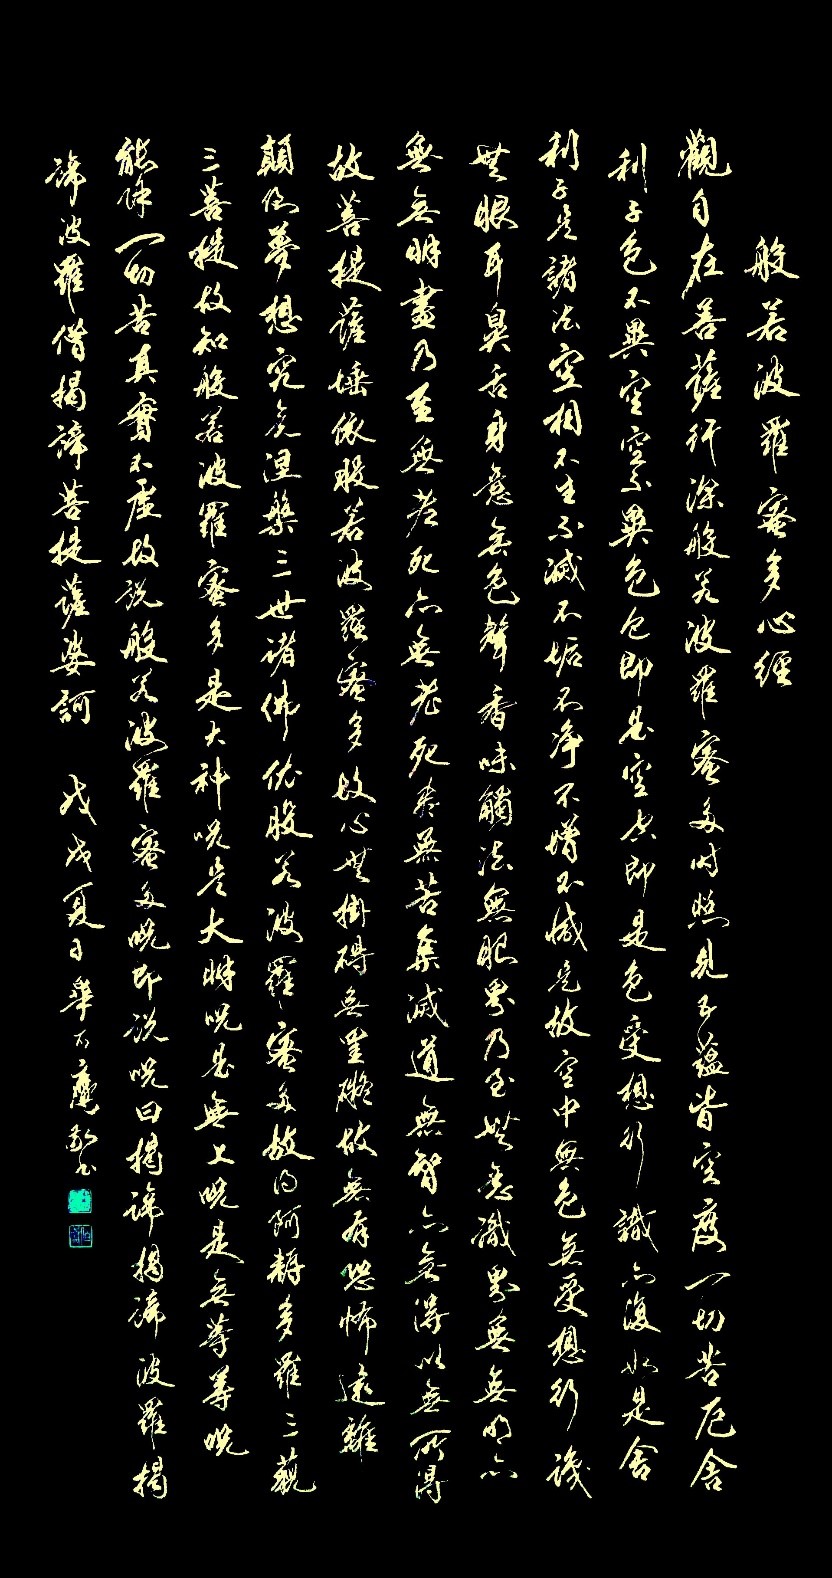 般若波羅蜜多心經
觀自在菩薩行深般若波羅蜜多時照見五蘊皆空度一切苦厄舍
利子色不異空空不異色色即是空空即是色受想行識亦復如是舍
利子是諸法空相不生不滅不垢不淨不增不減是故空中無色無受想行識
無眼耳鼻舌身意無色聲香味觸法無眼界乃至無意識界無無明亦
無無明盡乃至無老死亦無老死盡無苦集滅道無智亦無得以無所得
故菩提薩埵依般若波羅蜜多故心無掛礙無罣礙故無有恐怖遠離
顛倒夢想究竟涅槃三世諸佛依般若波羅蜜多故得阿耨多羅三藐
三菩提故知般若波羅蜜多是大神咒是大明咒是無上咒是無等等咒
能除一切苦真實不虛故說般若波羅蜜多咒即說咒曰揭諦揭諦波羅揭
諦波羅僧揭諦菩提薩婆訶 戊戌夏日 敬書